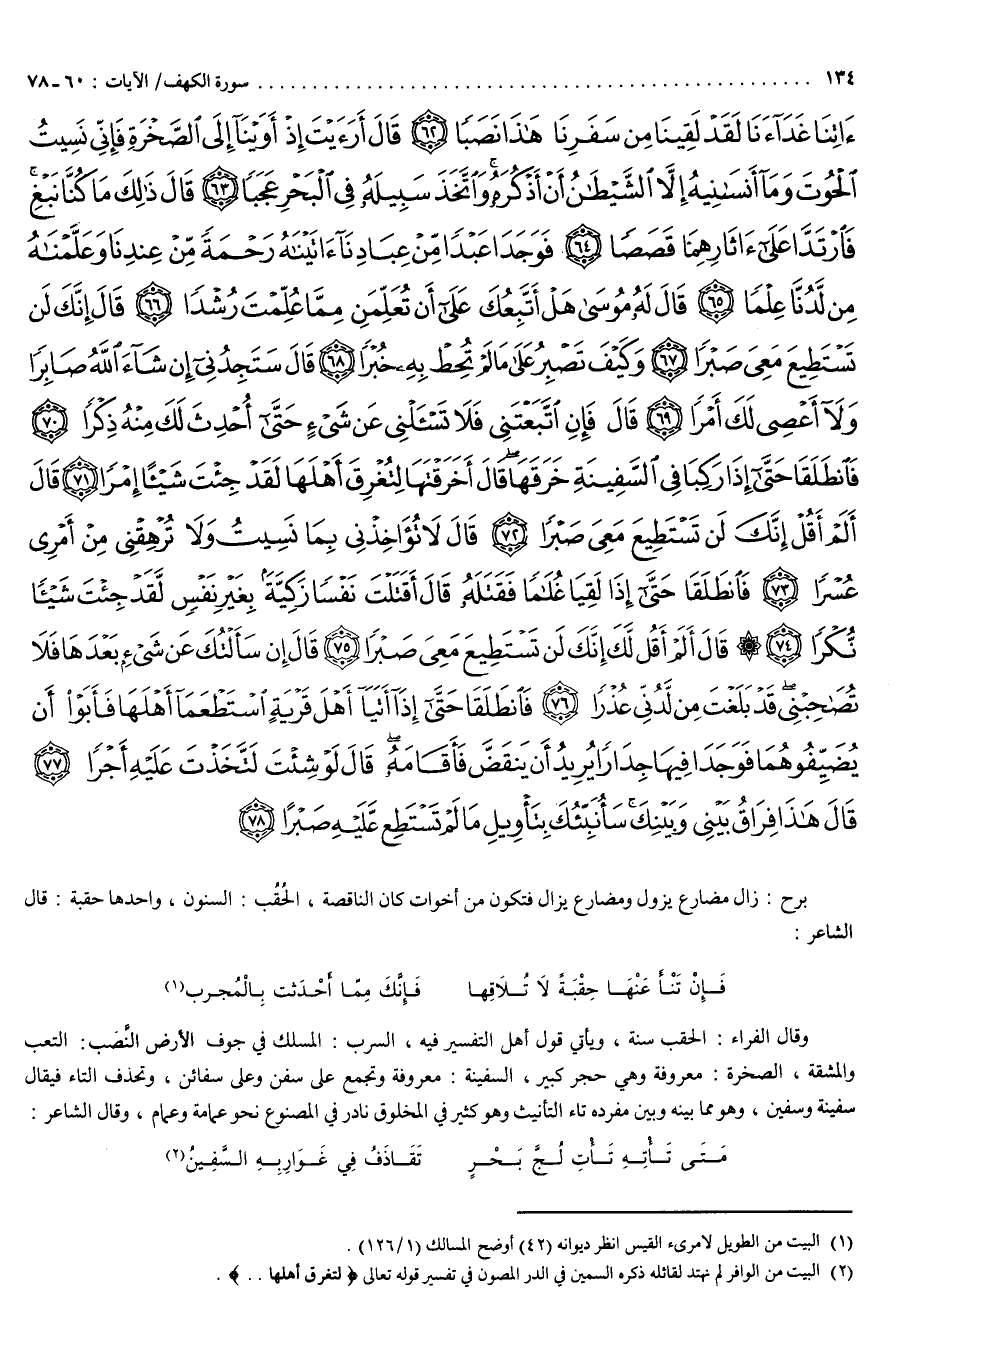 ١٣٤ ............................................................ سورة الكهف/ الآيات : ٦٠-٧٨
ءَاتِنَا غَدَآءَنَا لَقَدْ لَقِينَا مِن سَفَرِنَا هَٰذَا نَصَبًا ﴿٦٢﴾ قَالَ أَرَءَيْتَ إِذْ أَوَيْنَآ إِلَى ٱلصَّخْرَةِ فَإِنِّى نَسِيتُ
ٱلْحُوتَ وَمَآ أَنسَىٰنِيهُ إِلَّا ٱلشَّيْطَٰنُ أَنْ أَذْكُرَهُۥ ۚ وَٱتَّخَذَ سَبِيلَهُۥ فِى ٱلْبَحْرِ عَجَبًا ﴿٦٣﴾ قَالَ ذَٰلِكَ مَا كُنَّا نَبْغِ ۚ
فَٱرْتَدَّا عَلَىٰٓ ءَاثَارِهِمَا قَصَصًا ﴿٦٤﴾ فَوَجَدَا عَبْدًا مِّنْ عِبَادِنَآ ءَاتَيْنَٰهُ رَحْمَةً مِّنْ عِندِنَا وَعَلَّمْنَٰهُ
مِن لَّدُنَّا عِلْمًا ﴿٦٥﴾ قَالَ لَهُۥ مُوسَىٰ هَلْ أَتَّبِعُكَ عَلَىٰٓ أَن تُعَلِّمَنِ مِمَّا عُلِّمْتَ رُشْدًا ﴿٦٦﴾ قَالَ إِنَّكَ لَن
تَسْتَطِيعَ مَعِىَ صَبْرًا ﴿٦٧﴾ وَكَيْفَ تَصْبِرُ عَلَىٰ مَا لَمْ تُحِطْ بِهِۦ خُبْرًا ﴿٦٨﴾ قَالَ سَتَجِدُنِىٓ إِن شَآءَ ٱللَّهُ صَابِرًا
وَلَآ أَعْصِى لَكَ أَمْرًا ﴿٦٩﴾ قَالَ فَإِنِ ٱتَّبَعْتَنِى فَلَا تَسْـَٔلْنِى عَن شَىْءٍ حَتَّىٰٓ أُحْدِثَ لَكَ مِنْهُ ذِكْرًا ﴿٧٠﴾
فَٱنطَلَقَا حَتَّىٰٓ إِذَا رَكِبَا فِى ٱلسَّفِينَةِ خَرَقَهَا ۖ قَالَ أَخَرَقْتَهَا لِتُغْرِقَ أَهْلَهَا لَقَدْ جِئْتَ شَيْـًٔا إِمْرًا ﴿٧١﴾ قَالَ
أَلَمْ أَقُلْ إِنَّكَ لَن تَسْتَطِيعَ مَعِىَ صَبْرًا ﴿٧٢﴾ قَالَ لَا تُؤَاخِذْنِى بِمَا نَسِيتُ وَلَا تُرْهِقْنِى مِنْ أَمْرِى
عُسْرًا ﴿٧٣﴾ فَٱنطَلَقَا حَتَّىٰٓ إِذَا لَقِيَا غُلَٰمًا فَقَتَلَهُۥ قَالَ أَقَتَلْتَ نَفْسًا زَكِيَّةًۢ بِغَيْرِ نَفْسٍ لَّقَدْ جِئْتَ شَيْـًٔا
نُّكْرًا ﴿٧٤﴾ ۞ قَالَ أَلَمْ أَقُل لَّكَ إِنَّكَ لَن تَسْتَطِيعَ مَعِىَ صَبْرًا ﴿٧٥﴾ قَالَ إِن سَأَلْتُكَ عَن شَىْءٍۭ بَعْدَهَا فَلَا
تُصَٰحِبْنِى ۖ قَدْ بَلَغْتَ مِن لَّدُنِّى عُذْرًا ﴿٧٦﴾ فَٱنطَلَقَا حَتَّىٰٓ إِذَآ أَتَيَآ أَهْلَ قَرْيَةٍ ٱسْتَطْعَمَآ أَهْلَهَا فَأَبَوْا۟ أَن
يُضَيِّفُوهُمَا فَوَجَدَا فِيهَا جِدَارًا يُرِيدُ أَن يَنقَضَّ فَأَقَامَهُۥ ۖ قَالَ لَوْ شِئْتَ لَتَّخَذْتَ عَلَيْهِ أَجْرًا ﴿٧٧﴾
قَالَ هَٰذَا فِرَاقُ بَيْنِى وَبَيْنِكَ ۚ سَأُنَبِّئُكَ بِتَأْوِيلِ مَا لَمْ تَسْتَطِع عَّلَيْهِ صَبْرًا ﴿٧٨﴾
برح : زال مضارع يزول ومضارع يزال فتكون من أخوات كان الناقصة ، الحُقُب : السنون ، واحدها حقبة : قال
الشاعر :
فَـإِنْ تَنْـأَ عَنْهَـا حِقْبَةً لَا تُـلَاقِهـا فَـإِنَّكَ مِمّـا أَحْدَثت بِـالْمُجرب(١)
وقال الفراء : الحقب سنة ، ويأتي قول أهل التفسير فيه ، السرب : المسلك في جوف الأرض النَّصَب: التعب
والمشقة ، الصخرة : معروفة وهي حجر كبير ، السفينة : معروفة وتجمع على سفن وعلى سفائن ، وتحذف التاء فيقال
سفينة وسفين ، وهو مما بينه وبين مفرده تاء التأنيث وهو كثير في المخلوق نادر في المصنوع نحو عمامة وعمام ، وقال الشاعر :
مَـتَى تَـأْتِـهِ تَـأْتِ لُـجَّ بَـحْـرٍ تَقَـاذَفُ فِي غَـوَارِبِـهِ السَّفِـينُ(٢)
(١) البيت من الطويل لامرىء القيس انظر ديوانه (٤٢) أوضح المسالك (١/١٢٦) .
(٢) البيت من الوافر لم نهتد لقائله ذكره السمين في الدر المصون في تفسير قوله تعالى ﴿ لتغرق أهلها . . ﴾ .